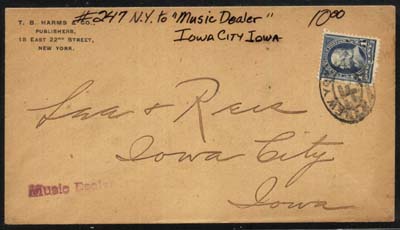 #247 N.Y. to "Music Dealer" 10.00
Iowa City Iowa
T. B. HARMS & CO.
PUBLISHERS,
18 EAST 22ND STREET,
NEW YORK.
NEW
Lee & Ries
Iowa City
Iowa
Music Dealer